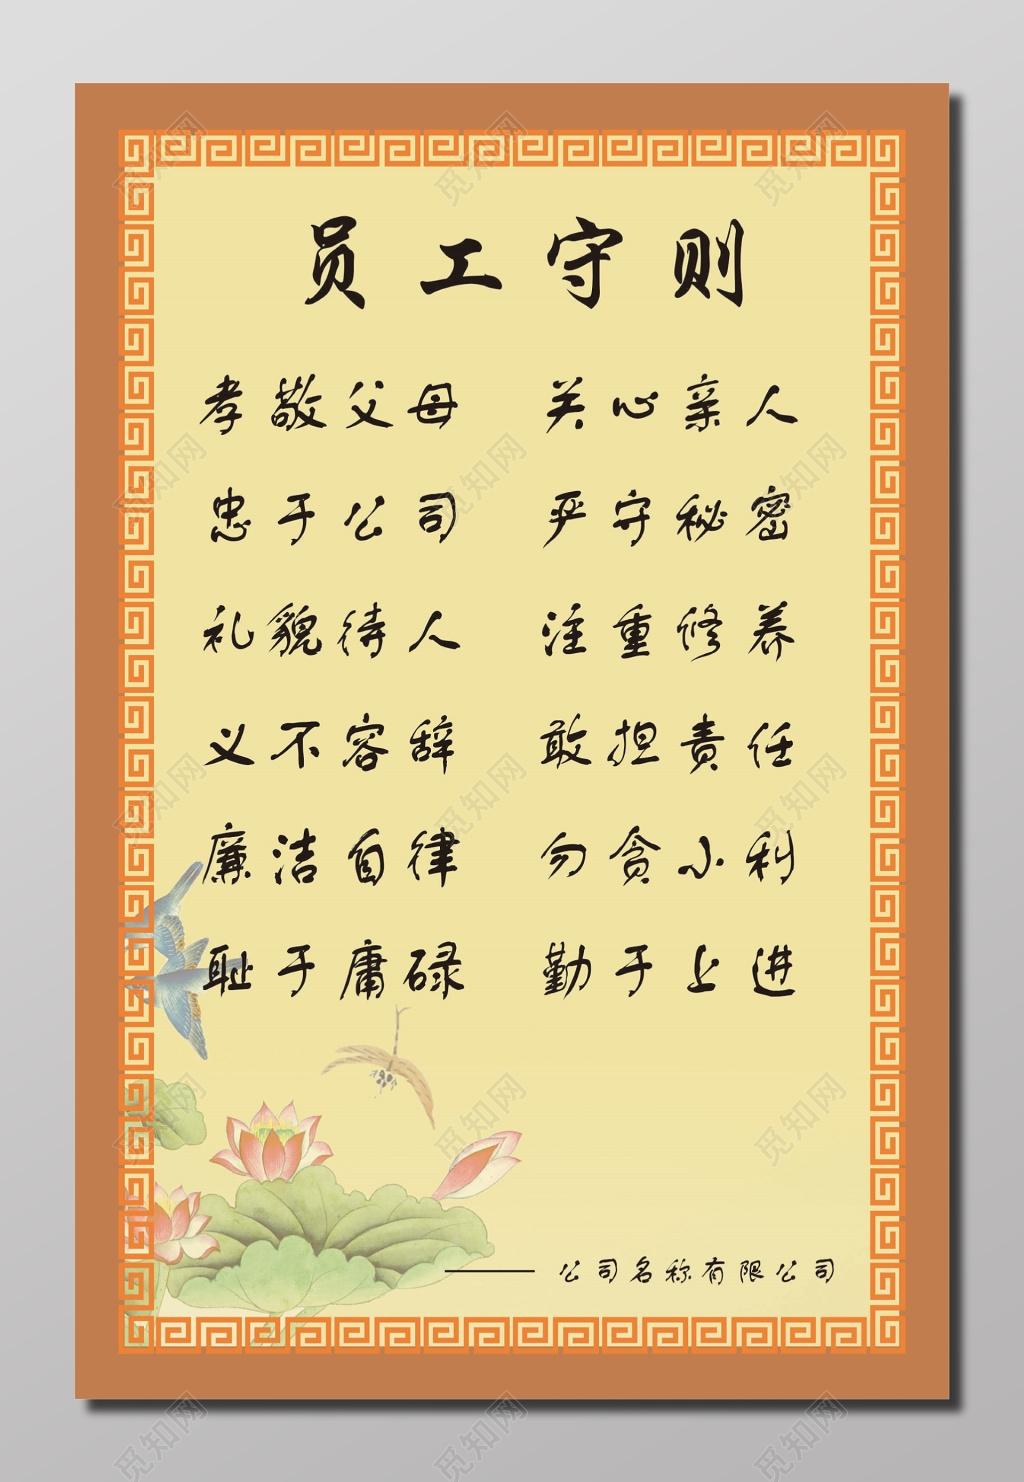 员工守则
孝敬父母 关心亲人
忠于公司 严守秘密
礼貌待人 注重修养
义不容辞 敢担责任
廉洁自律 勿贪小利
耻于庸碌 勤于上进
—— 公司名称有限公司
觅知网